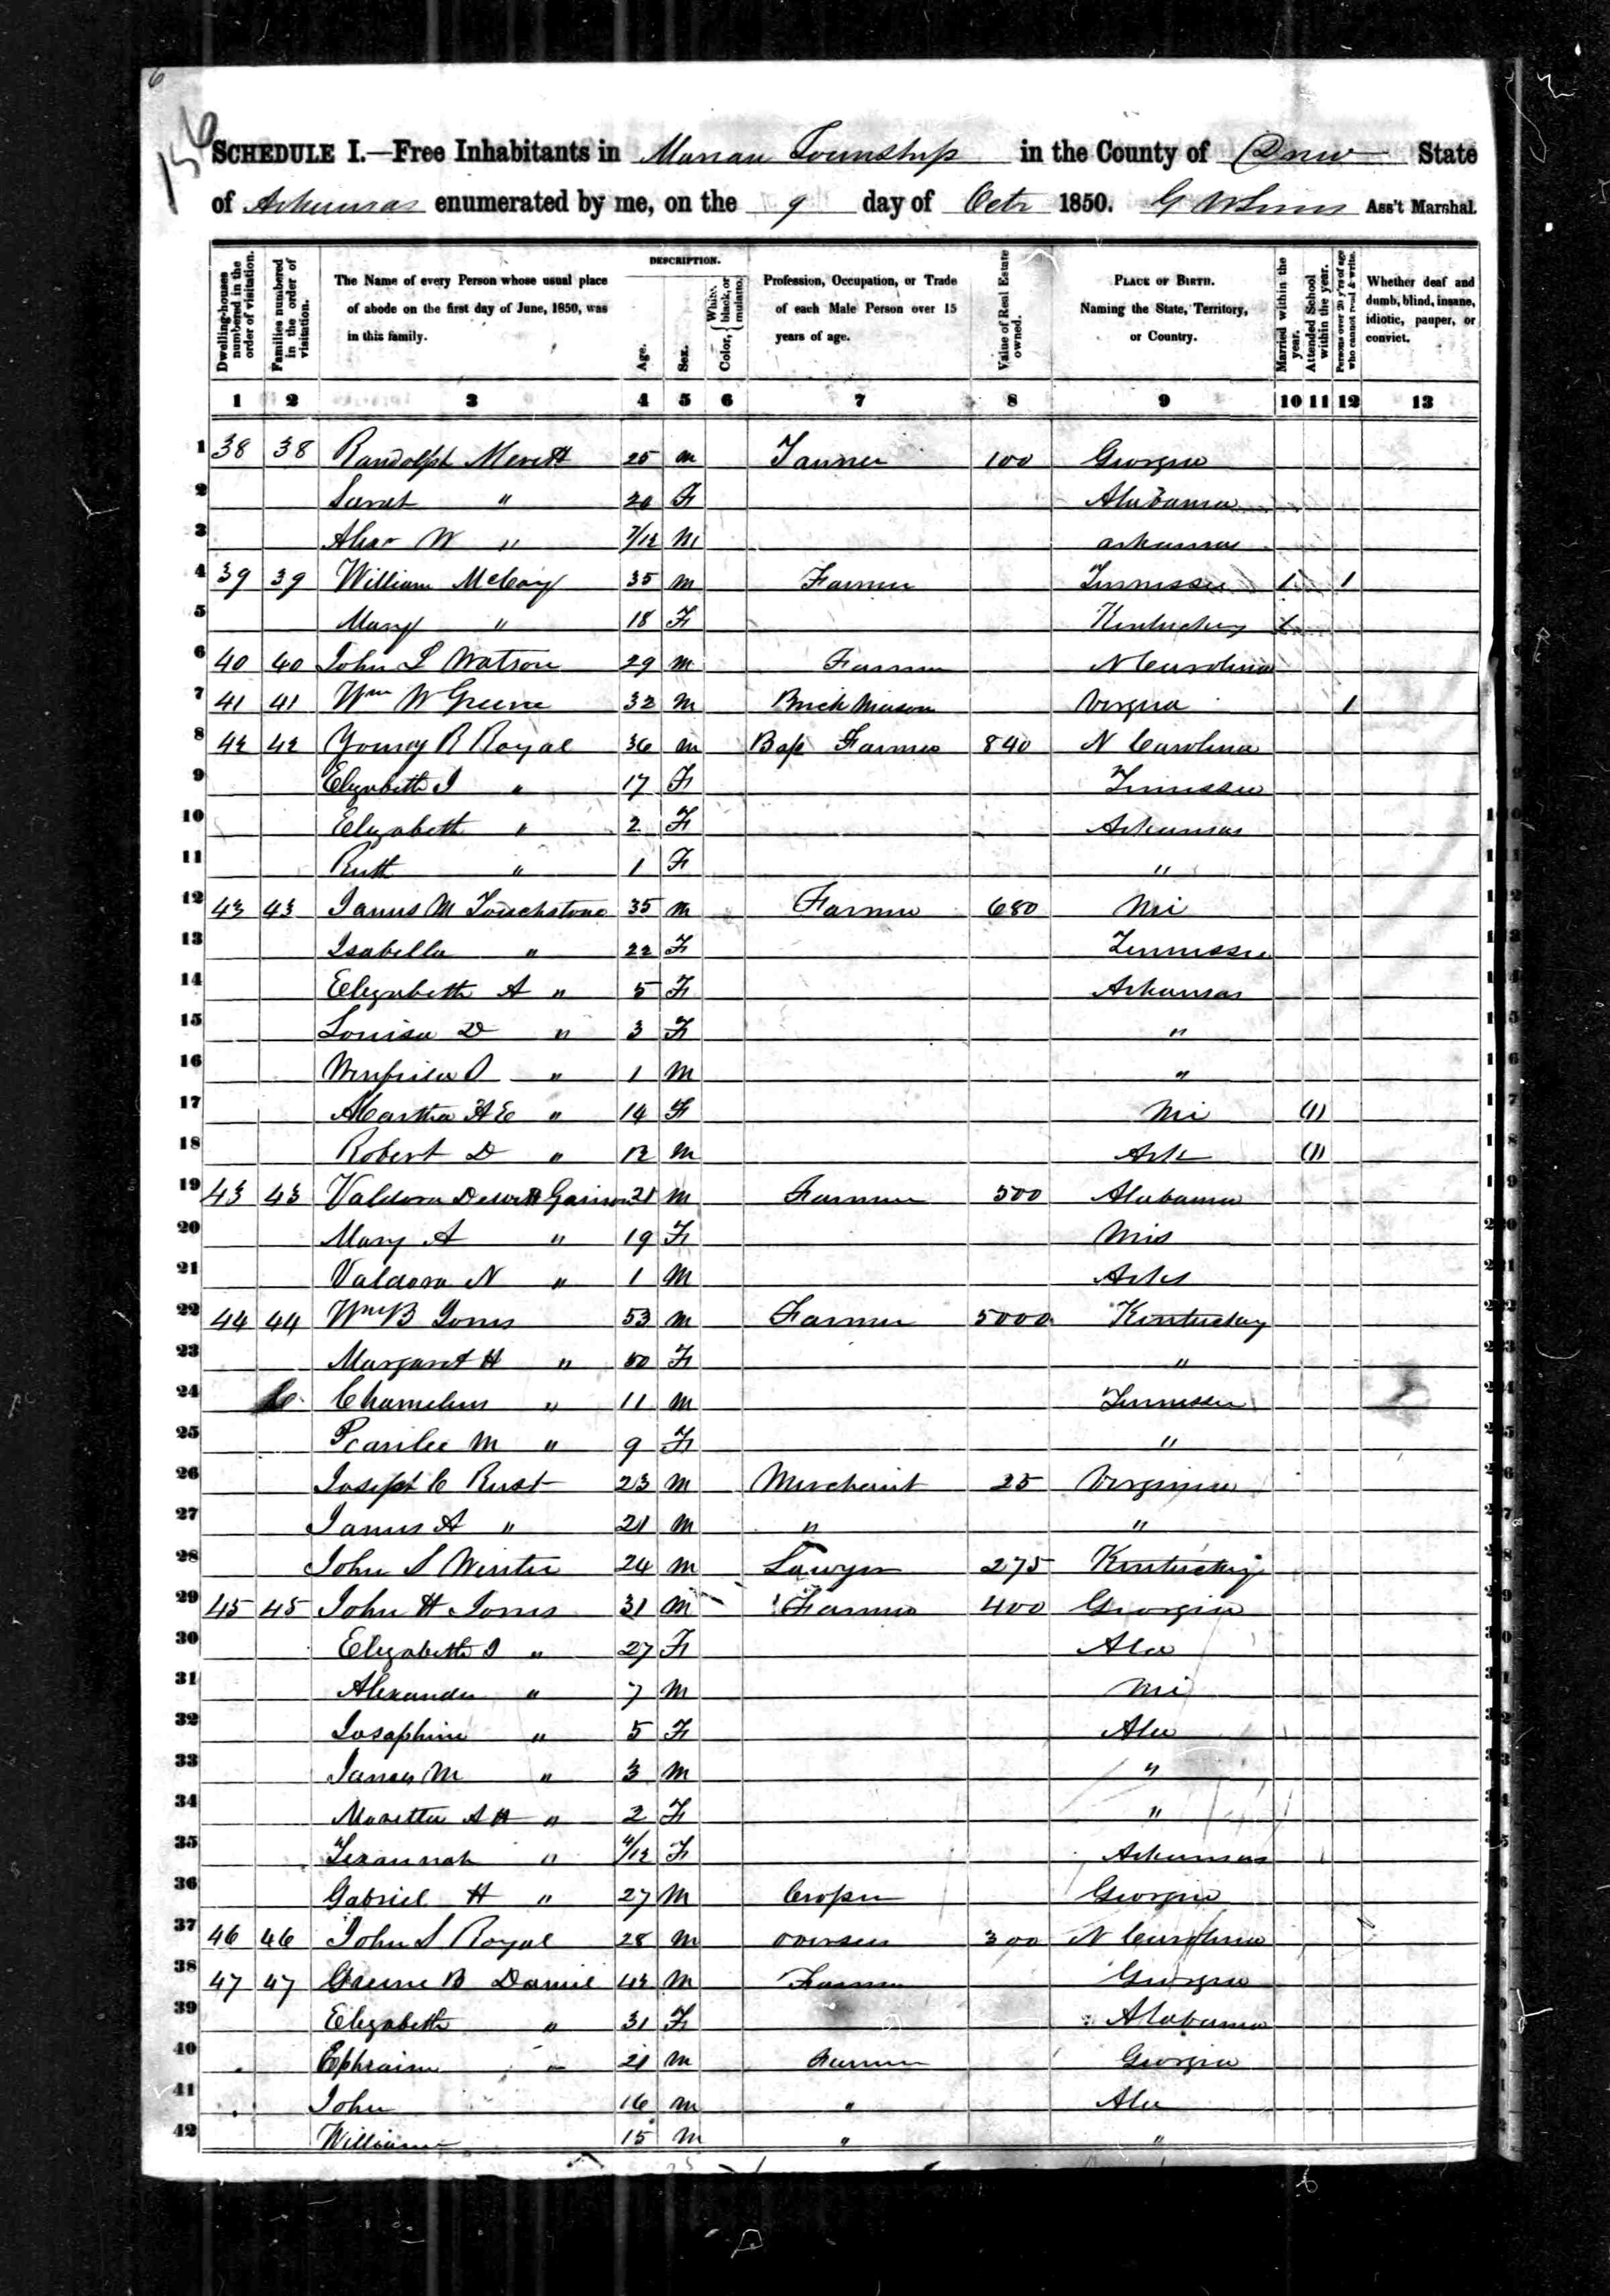 6
156
SCHEDULE I.—Free Inhabitants in Marian Township in the County of Drew State
of Arkansas enumerated by me, on the 9 day of Octr 1850. G W Sims Ass't Marshal.
Dwelling-houses numbered in the order of visitation.
Families numbered in the order of visitation.
The Name of every Person whose usual place of abode on the first day of June, 1850, was in this family.
DESCRIPTION.
Age.
Sex.
Color, { White, black, or mulatto.
Profession, Occupation, or Trade of each Male Person over 15 years of age.
Value of Real Estate owned.
PLACE OF BIRTH. Naming the State, Territory, or Country.
Married within the year.
Attended School within the year.
Persons over 20 y'rs of age who cannot read & write.
Whether deaf and dumb, blind, insane, idiotic, pauper, or convict.
1 2 3 4 5 6 7 8 9 10 11 12 13
1 38 38 Randolph Meritt 25 M 100 Georgia
2 Sarah " 20 F Alabama
3 W " 7/12 M Arkansas
4 39 39 William McCoy 35 M Farmer Tennessee 1 1
5 Mary " 18 F Kentucky
6 40 40 John L Watson 29 M Farmer N Carolina
7 41 41 Wm W Greene 32 M Brick Mason Virginia 1
8 42 42 Young R Royal 36 M Farmer 840 N Carolina
9 Elizabeth J " 17 F Tennessee
10 Elizabeth " 2 F Arkansas
11 Ruth " 1 F "
12 43 43 James M Touchstone 35 M Farmer 680 Mi
13 Isabella " 22 F Tennessee
14 Elizabeth A " 5 F Arkansas
15 Louisa D " 3 F "
16 Winfield S " 1 M "
17 Martha H E " 14 F Mi (1)
18 Robert D " 12 M Ark (1)
19 43 43 Valdora Dewitt Garison 21 M Farmer 500 Alabama
20 Mary A " 19 F Mis
21 Valdora N " 1 M Arks
22 44 44 Wm B Jones 53 M Farmer 5000 Kentucky
23 Margaret H " 50 F "
24 " 11 M Tennessee
25 M " 9 F "
26 Joseph C Rust 23 M Merchant 25 Virginia
27 James A " 21 M " "
28 John S Winter 24 M Lawyer 275 Kentucky
29 45 45 John H Jones 31 M Farmer 400 Georgia
30 Elizabeth J " 27 F Ala
31 Alexander " 7 M Mi
32 Josaphine " 5 F Ala
33 James M " 3 M "
34 A H " 2 F "
35 Texannah " 4/12 F Arkansas
36 Gabriel H " 27 M Croper Georgia
37 46 46 John S Royal 28 M Overseer 300 N Carolina
38 47 47 Greene B Daniel 42 M Farmer Georgia
39 Elizabeth " 31 F Alabama
40 Ephraim " 21 M Farmer Georgia
41 John 16 M " Ala
42 William 15 M " "